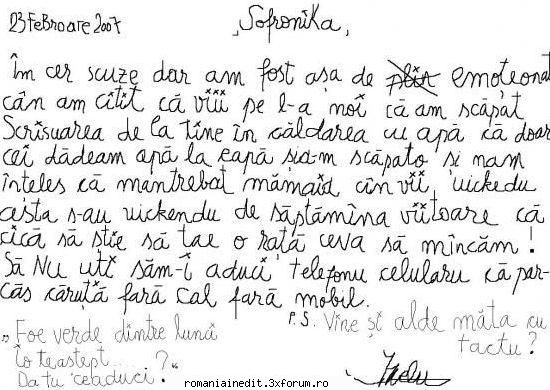 23 FeBroare 2007 „Sofronika„
Îm cer scuze dar am fost așa de plin emoteonat
cân am citit că viii pe l-a noi că am scăpat
Scrisuarea de la tine în căldarea cu apă că doar
cei dădeam apă la eapă șia-m scăpato și nam
înteles că mantrebat mămaia cîn vii, uickedu
asta s-au uickendu de săptămîna viitoare că
cică să știe să tae o rață ceva să mîncăm!
Să NU uti săm-i aduci telefonu celularu că par-
căs căruță fară cal fară mobil.
P.S. Vine și alde măta cu
tactu?
„Foe verde dintre lună
Io teastept...
Da tu ceaduci?“
romaniainedit.3xforum.ro